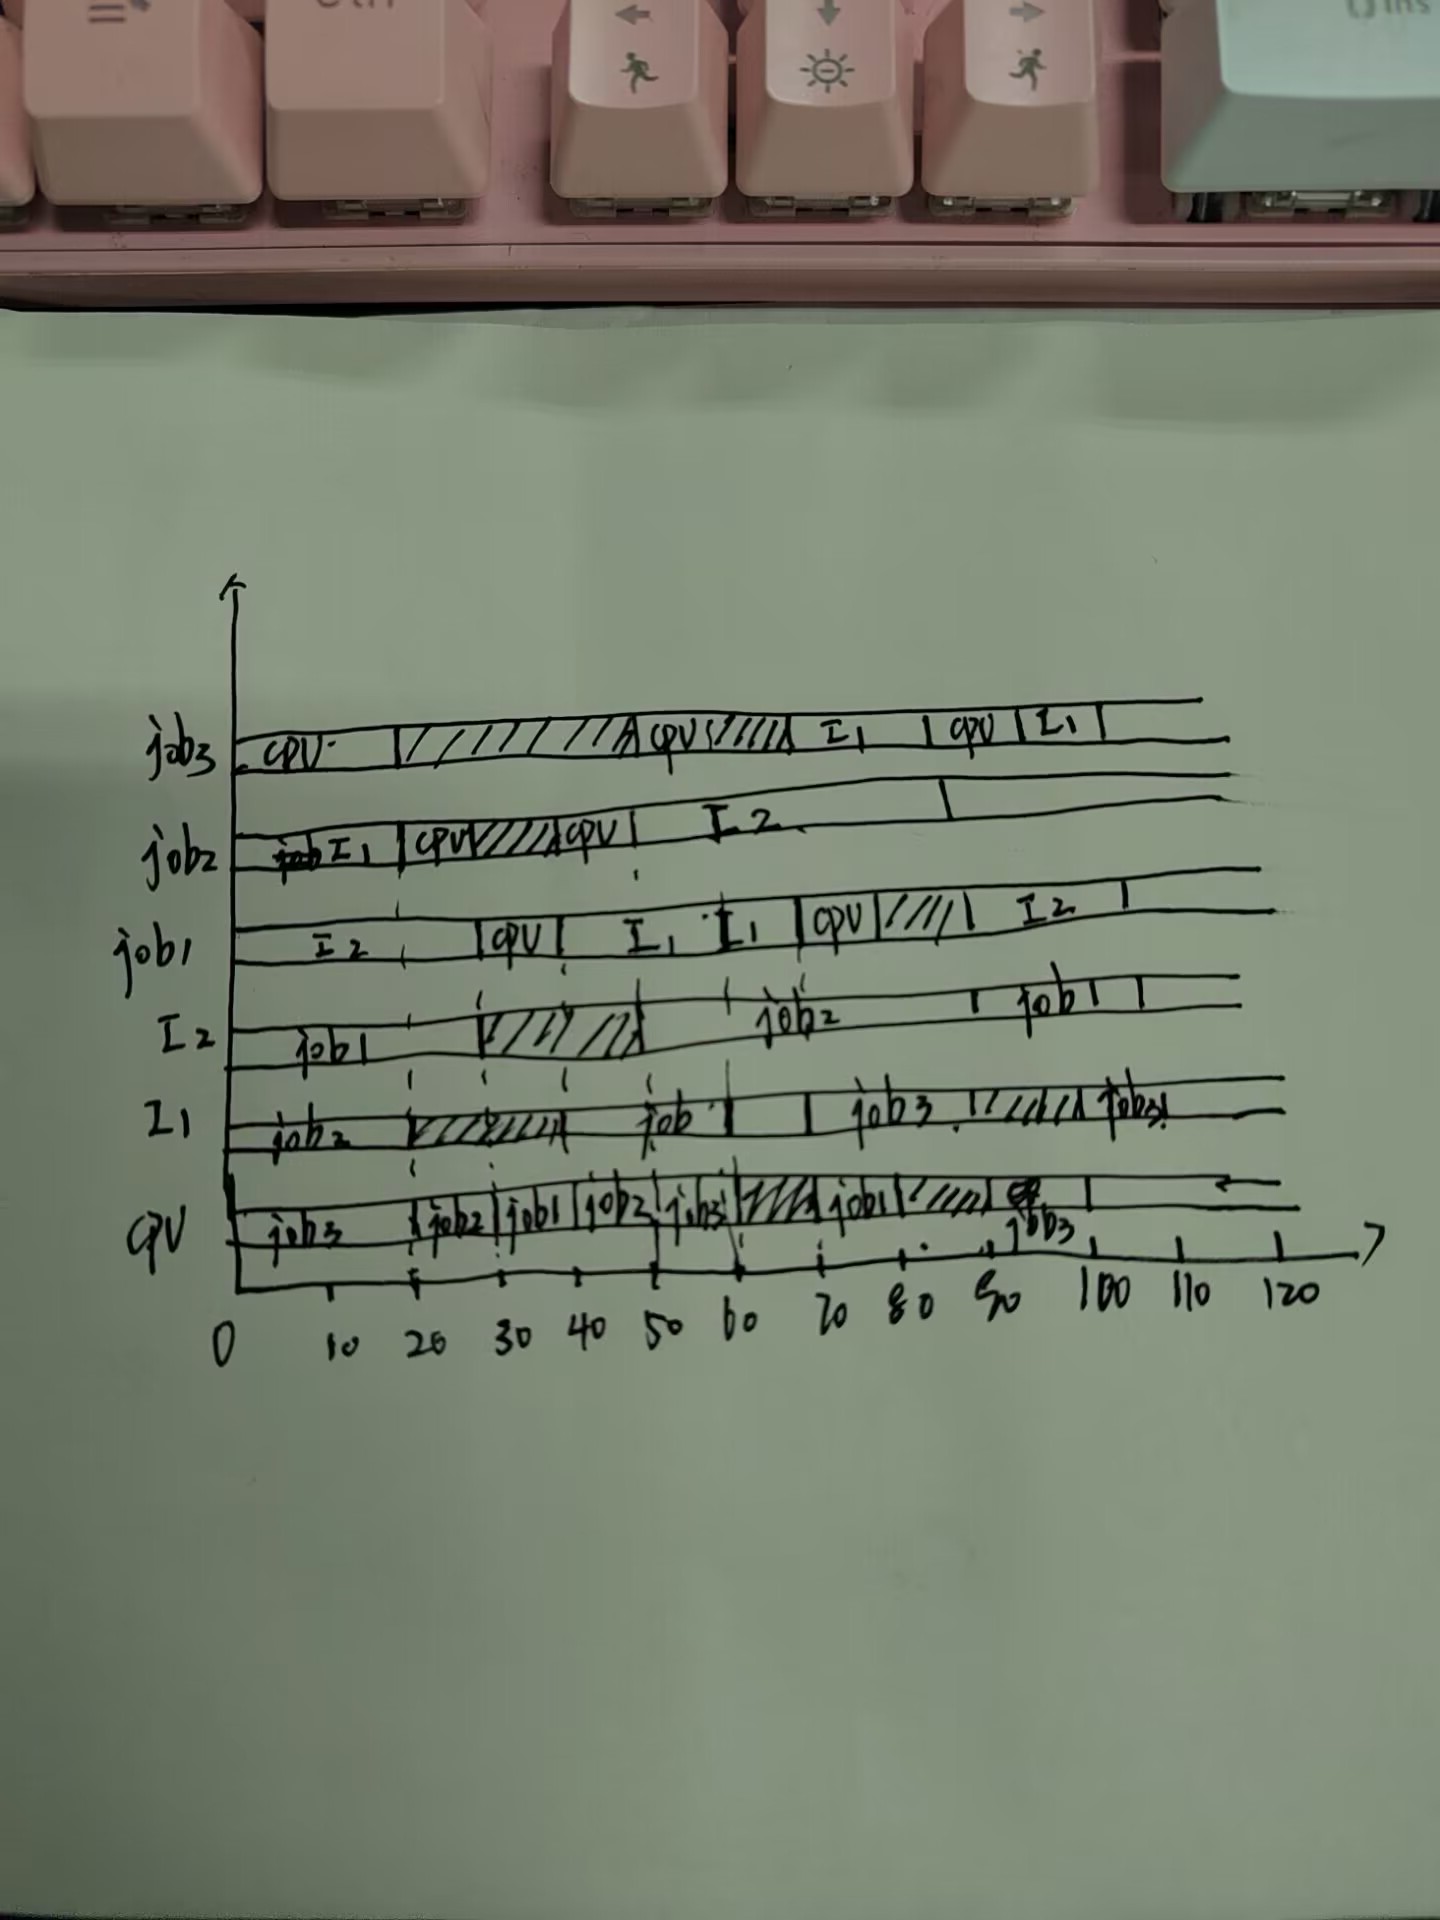 Ctrl
Ins
job3 CPU CPU I1 CPU I1
job2 I1 CPU CPU I2
job1 I2 CPU I1 I1 CPU I2
I2 job1 job2 job1
I1 job2 job job3 job3
CPU job3 job2 job1 job2 job3 job1 job3
0 10 20 30 40 50 60 70 80 90 100 110 120